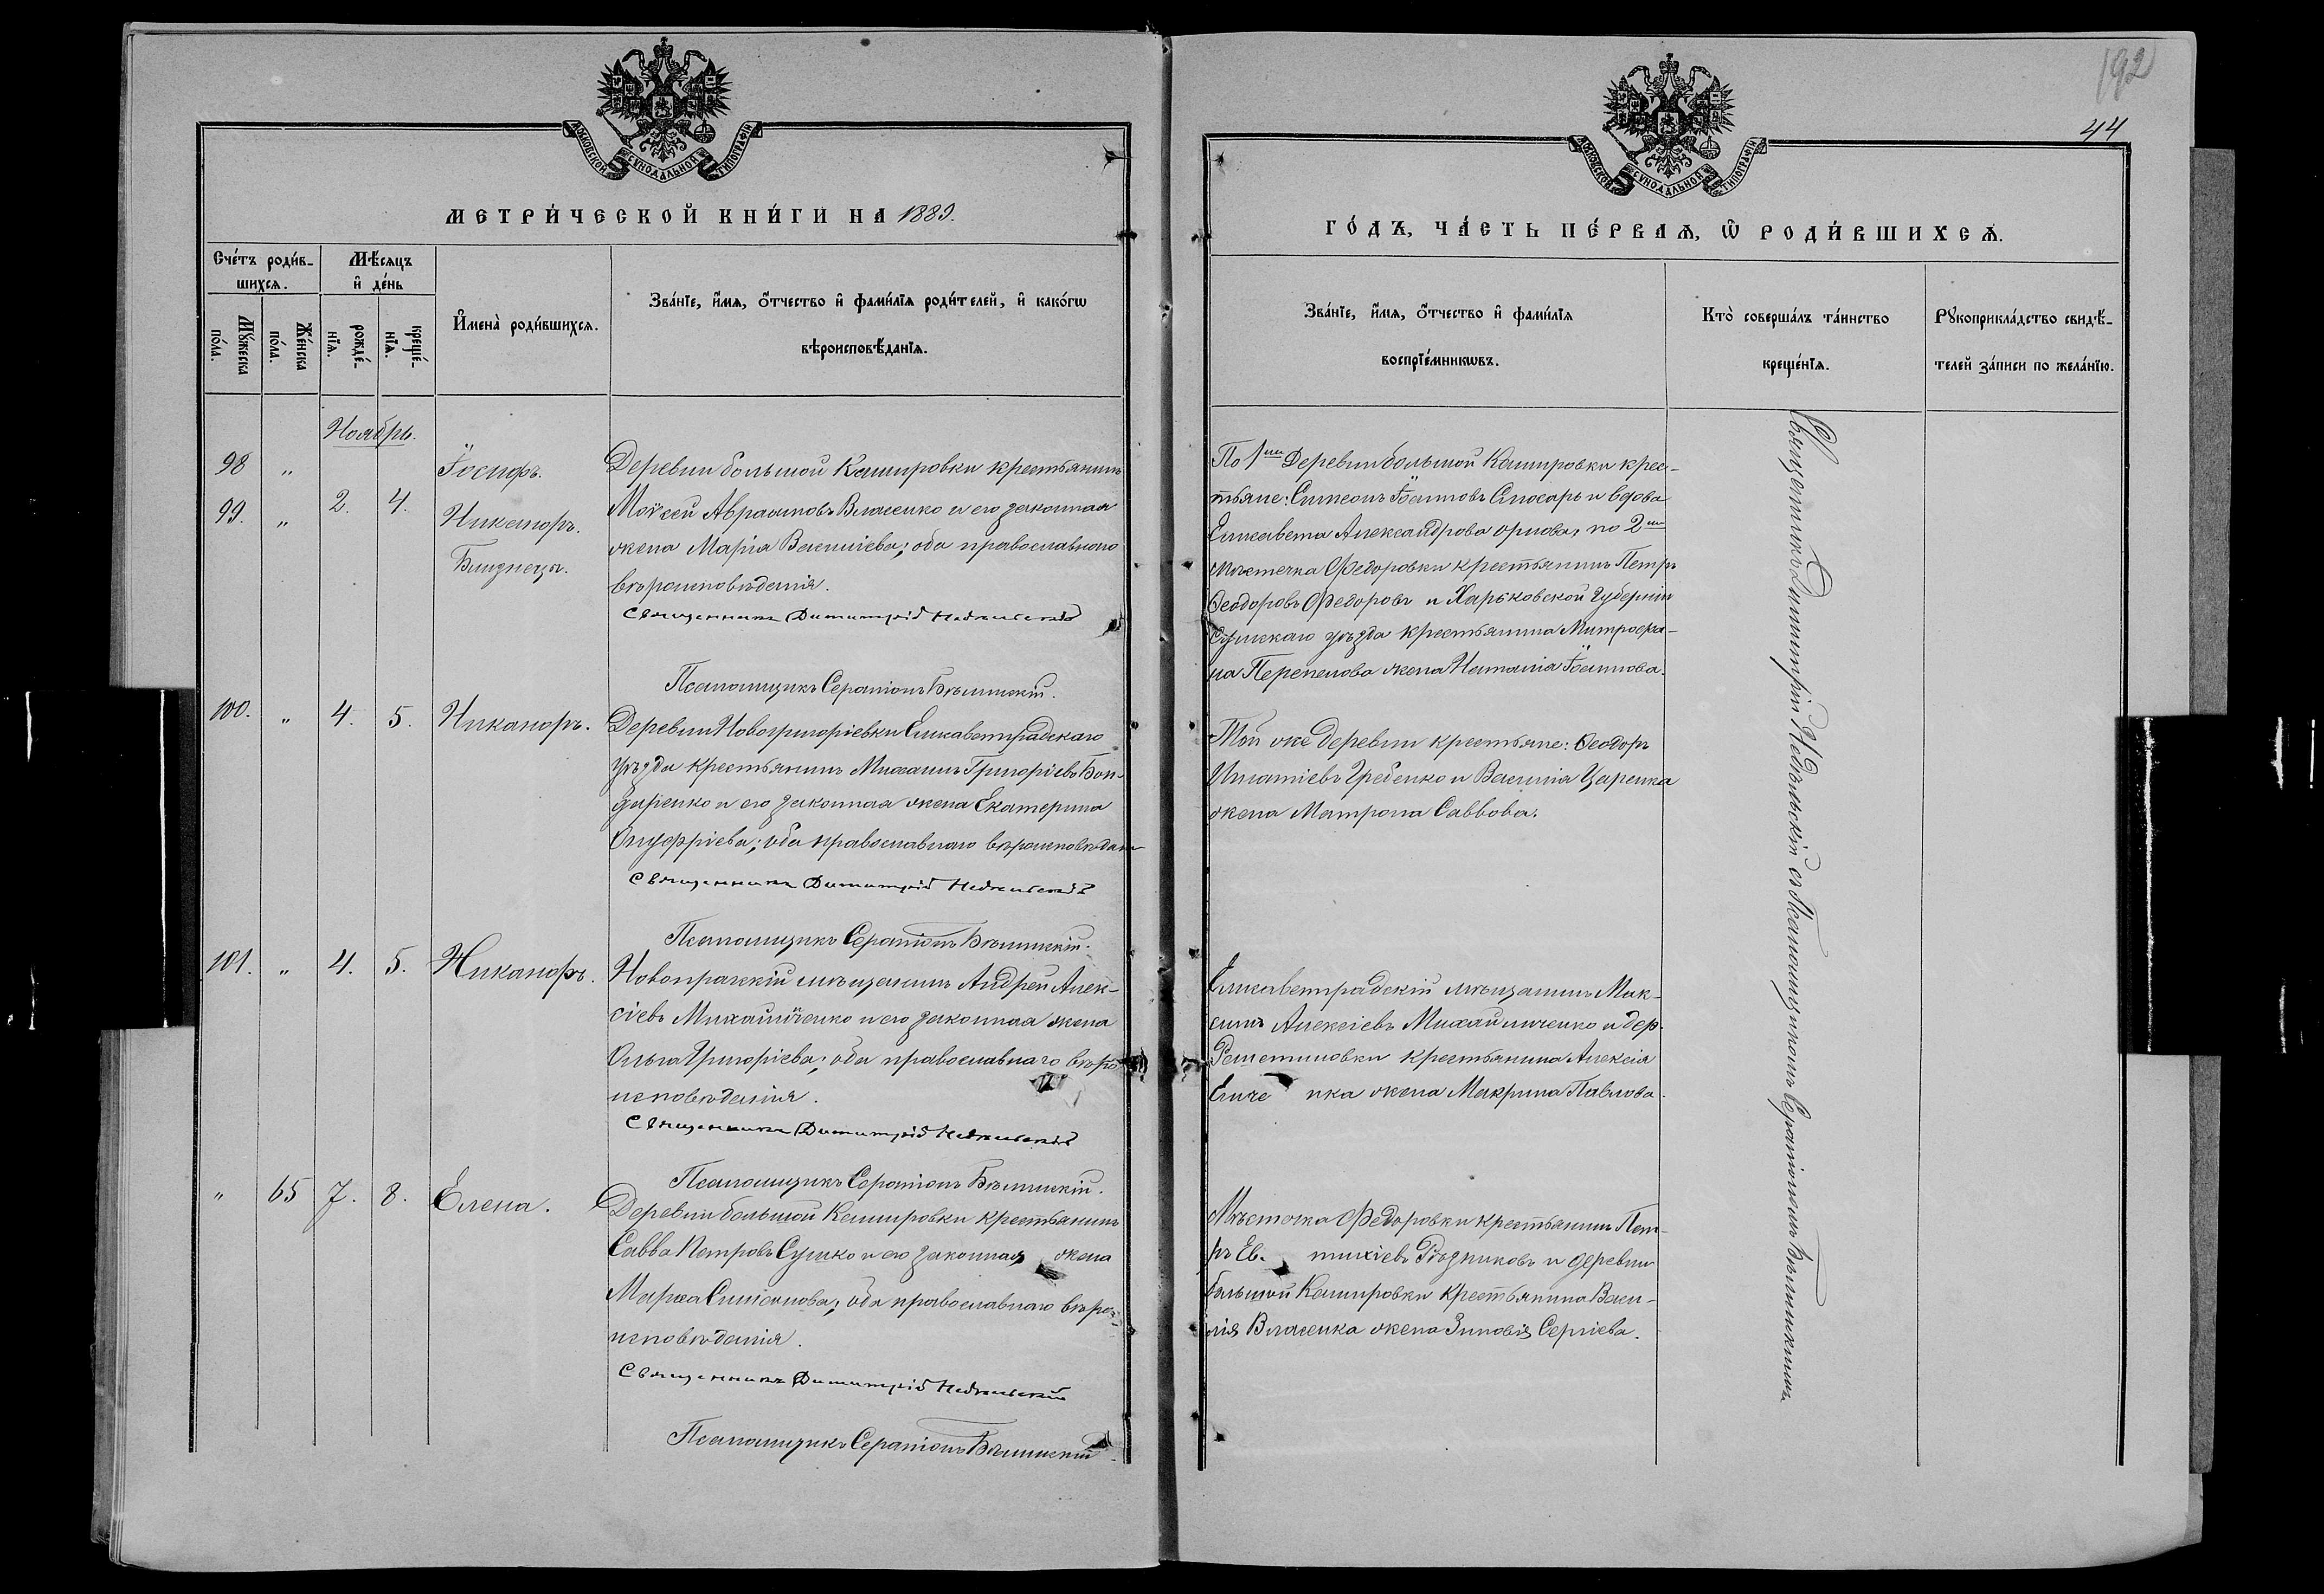 192
44
МОСКОВСКОЙ СѴНОДАЛЬНОЙ ТИПОГРАФІИ
МЕТРИ́ЧЕСКОЙ КНИ́ГИ НА 1889.
Сче́тъ роди́в-
шихся.
Мѣ́сяцъ
и҆ де́нь
Мꙋ́жеска
по́ла.
Же́нска
по́ла.
рожде́-
нїя.
креще́-
нїя.
И҆мена̀ роди́вшихся.
Зва́нїе, и҆́мя, ѻ҆́тчество и҆ фами́лїя роди́телей, и҆ како́гѡ
вѣроисповѣ́данїя.
Ноябрь.
98 „
Іосифъ.
99. „ 2. 4.
Никаноръ.
Близнецы.
Деревни большой Кашировки крестьянинъ
Моѵсей Авраамовъ Власенко и его законная
жена Марія Василіева; оба православнаго
вѣроисповѣданія.
Священникъ Димитрій
Псаломщикъ Серапіонъ Бѣлинскій.
100. „ 4. 5. Никаноръ.
Деревни Новогригоріевки Елисаветградскаго
уѣзда крестьянинъ Михаилъ Григоріевъ Бон-
даренко и его законная жена Екатерина
Онуфріева; оба православнаго вѣроисповѣдан-
Священникъ Димитрій
Псаломщикъ Серапіонъ Бѣлинскій.
101. „ 4. 5. Никаноръ.
Новопражскій мѣщанинъ Андрей Алек-
сіевъ Михайличенко и его законная жена
Ольга Григоріева; оба православнаго вѣро-
исповѣданія.
Священникъ Димитрій
Псаломщикъ Серапіонъ Бѣлинскій.
„ 65 7. 8. Елена.
Деревни большой Кашировки крестьянинъ
Савва Петровъ Сушко и его законная жена
Марѳа Симеонова; оба православнаго вѣро-
исповѣданія.
Священникъ Димитрій
Псаломщикъ Серапіонъ Бѣлинскій.
МОСКОВСКОЙ СѴНОДАЛЬНОЙ ТИПОГРАФІИ
ГО́ДЪ, ЧА́СТЬ ПЕ́РВАЯ, Ѡ҆ РОДИ́ВШИХСЯ.
Зва́нїе, и҆́мя, ѻ҆́тчество и҆ фами́лїя
воспрїе́мникѡвъ.
Кто̀ соверша́лъ та́инство
креще́нїя.
Рꙋкоприкла́дство свидѣ́-
телей за́писи по жела́нїю.
По 1му Деревни большой Кашировки крес-
тьяне: Симеонъ Іоанновъ Слюсарь и вдова
Елисавета Александрова Орлова, по 2му
мѣстечка Ѳедоровки крестьянинъ Петръ
Ѳеодоровъ Ѳедоровъ и Харьковской Губерніи
Сумскаго уѣзда крестьянина Митрофа-
на Перепелова жена Наталія Іоаннова.
Той же деревни крестьяне: Ѳеодоръ
Игнатіевъ Гребенко и Василія Царенка
жена Матрона Саввова.
Елисаветградскій мѣщанинъ Мак-
симъ Алексіевъ Михайличенко и дер.
Решетиловки крестьянина Алексія
жена Макрина Павлова.
Мѣстечка Ѳедоровки крестьянинъ Пет-
ръ Ев. тихіевъ и деревни
большой Кашировки крестьянина Васи-
лія Власенка жена Зиновія Сергіева.
Священникъ Димитрій съ Псаломщикомъ Серапіономъ Бѣлинскимъ.